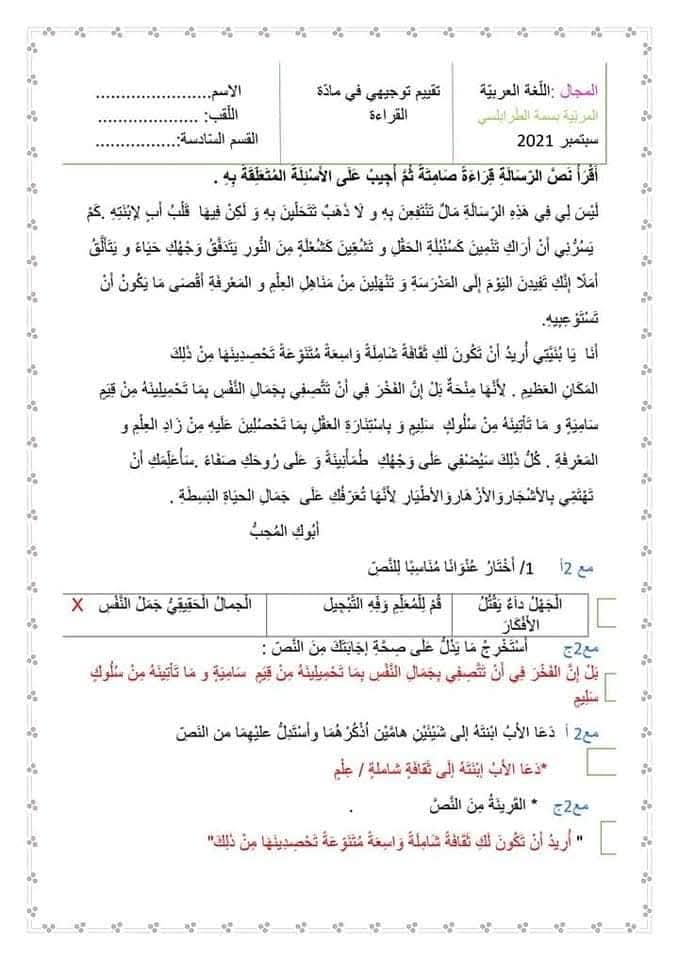 المجال :اللّغة العربيّة
المربّية بسمة الطّرابلسي
سبتمبر 2021
تقييم توجيهي في مادّة
القراءة
الاسم.......................
اللّقب: ....................
القسم السّادسة:................
أَقْرَأُ نَصَّ الرِّسَالَةِ قِرَاءَةً صَامِتَةً ثُمَّ أُجِيبُ عَلَى الأَسْئِلَةَ المُتَعَلِّقَةَ بِهِ .
لَيْسَ لِي فِي هَذِهِ الرِّسَالَةِ مَالٌ تَنْتَفِعِنَ بِهِ و لَا ذَهَبٌ تَتَحَلّينَ بِهِ وَ لَكِنْ فِيهَا قَلْبُ أَبٍ لِإبْنَتِهِ .كَمْ
يَسُرُّنِي أَنْ أَرَاكِ تَنْمِينَ كَسُنْبُلَةِ الحَقْلِ و تَشُعِّينَ كَشُعْلَةٍ مِنَ النُّورِ يَتَدَفَّقُ وَجْهُكِ حَيَاءً و يَتَأَلَّقُ
أَمَلًا إِنَّكِ تَفِيدِنَ اليَوْمَ إِلَى المَدْرَسَةِ وَ تَنْهَلِينَ مِنْ مَنَاهِلِ العِلْمِ و المَعْرِفَةِ أَقْصَى مَا يَكُونُ أَنْ
تَسْتَوْعِبِيهِ.
أَنَا يَا بُنَيَّتِي أُرِيدُ أَنْ تَكُونَ لَكِ ثَقَافَةً شَامِلَةً وَاسِعَةً مُتَنَوِّعَةً تَحْصِدِينَهَا مِنْ ذَلِكَ
المَكَانِ العَظِيمِ . لأَنَّهَا مِنْحَةٌ بَلْ إِنَّ الفَخْرَ فِي أَنْ تَتَّصِفِي بِجَمَالِ النَّفْسِ بِمَا تَحْمِيلِينَهُ مِنْ قِيَمٍ
سَامِيَةٍ و مَا تَأْتِينَهُ مِنْ سُلُوكٍ سَلِيمٍ وَ بِاسْتِنَارَةِ العَقْلِ بِمَا تَحْصُلِينَ عَلَيْهِ مِنْ زَادِ العِلْمِ و
المَعْرِفَةِ . كُلُّ ذَلِكَ سَيُضْفِي عَلَى وَجْهُكِ طُمَأْنِينَةً وَ عَلَى رُوحَكِ صَفَاءً .سَأُعَلِّمَكِ أَنْ
تَهْتَمِّي بِالأَشْجَارِوَالأَزْهَارِوَالأَطْيَارِ لأَنَّهَا تُعَرِّفُكِ عَلَى جَمَالِ الحَيَاةِ البَسِطَةِ .
أَبُوكِ المُحِبُّ
مع 2أ 1/ أَخْتَارُ عُنْوَانًا مُنَاسِبًا لِلنَّصِّ
الْجَهْلُ دَاءٌ يَقْتُلُ
الأَفْكَارَ
قُمْ لِلْمُعَلِّمِ وَفِهِ التَّبْجِيل
الْجمالُ الْحَقِيقِيُّ جَمَلُ النَّفْسِ X
مع2ج أَسْتَخْرِجُ مَا يَدُلُّ عَلَى صِحَّةِ إِجَابَتَكَ مِنَ النَّصِّ :
بَلْ إِنَّ الفَخْرَ فِي أَنْ تَتَّصِفِي بِجَمَالِ النَّفْسِ بِمَا تَحْمِيلِينَهُ مِنْ قِيَمٍ سَامِيَةٍ و مَا تَأْتِينَهُ مِنْ سُلُوكٍ
سَلِيمٍ
مع2 أ دَعَا الأبُ ابْنتَهُ إلى شَيْئَيْنِ هامَّيْنِ أذْكُرْهُمَا وأسْتَدِلُّ عليْهِمَا من النَصّ
*دَعَا الأبُ اِبْنَتَهُ إلَى ثَقافَةٍ شاملةٍ / عِلْمٍ
مع2ج * القَرِينَةُ مِنَ النَّصَّ .
" أُرِيدُ أَنْ تَكُونَ لَكِ ثَقَافَةً شَامِلَةً وَاسِعَةً مُتَنَوِّعَةً تَحْصِدِينَهَا مِنْ ذَلِكَ"